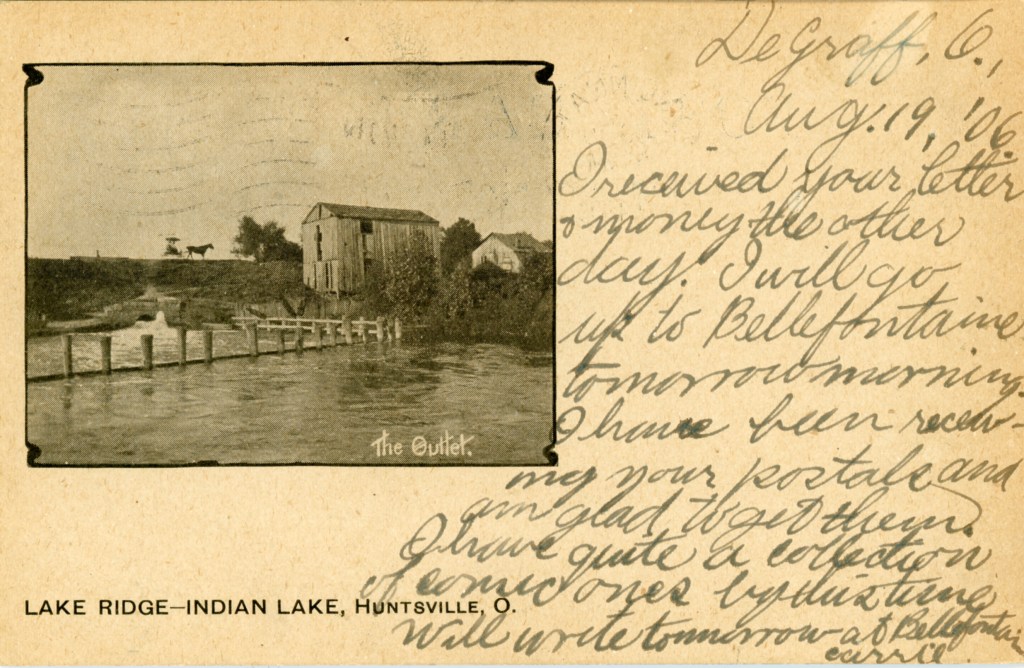 De Graff, O.,
Aug. 19, '06
I received your letter
& money the other
day. I will go
up to Bellefontaine
tomorrow morning.
I have been receiv-
ing your postals and
am glad to get them.
I have quite a collection
of comic ones by this time
Will write tomorrow at Bellefontain
Carrie
The Outlet.
LAKE RIDGE—INDIAN LAKE, HUNTSVILLE, O.